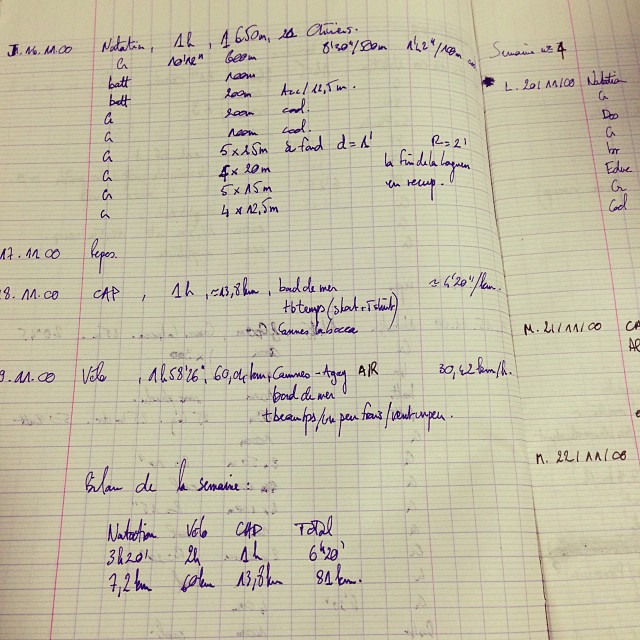 J. 16.11.00 Natation, 1h, 1650m, Oliviers.
Cr 10'12" 600m 8'30"/500m 1'42"/100m
batt 100m
batt 200m Acc/12,5m.
Cr 200m cool.
Cr 100m cool.
Cr 5x25m à fond d=1' R=2'
Cr 4x20m la fin de la longueur
Cr 5x15m en recup.
Cr 4x12,5m
17.11.00 Repos.
8.11.00 CAP, 1h, ≈13,8km, bord de mer ≈4'20"/km.
tb temps/(short+Tshirt)
Cannes la bocca
9.11.00 Vélo, 1h58'26", 60,04km, Cannes-Agay A/R 30,42km/h.
bord de mer
+beau tps/un peu frais/vent un peu.
Bilan de la semaine:
Natation Vélo CAP Total
3h20' 2h 1h 6h20'
7,2km 60km 13,8km 81km.
Semaine n°4
L. 20/11/00 Natation
Cr
Dos
Cr
br
Educ
Cr
Cool
M. 21/11/00 CA
M. 22/11/00